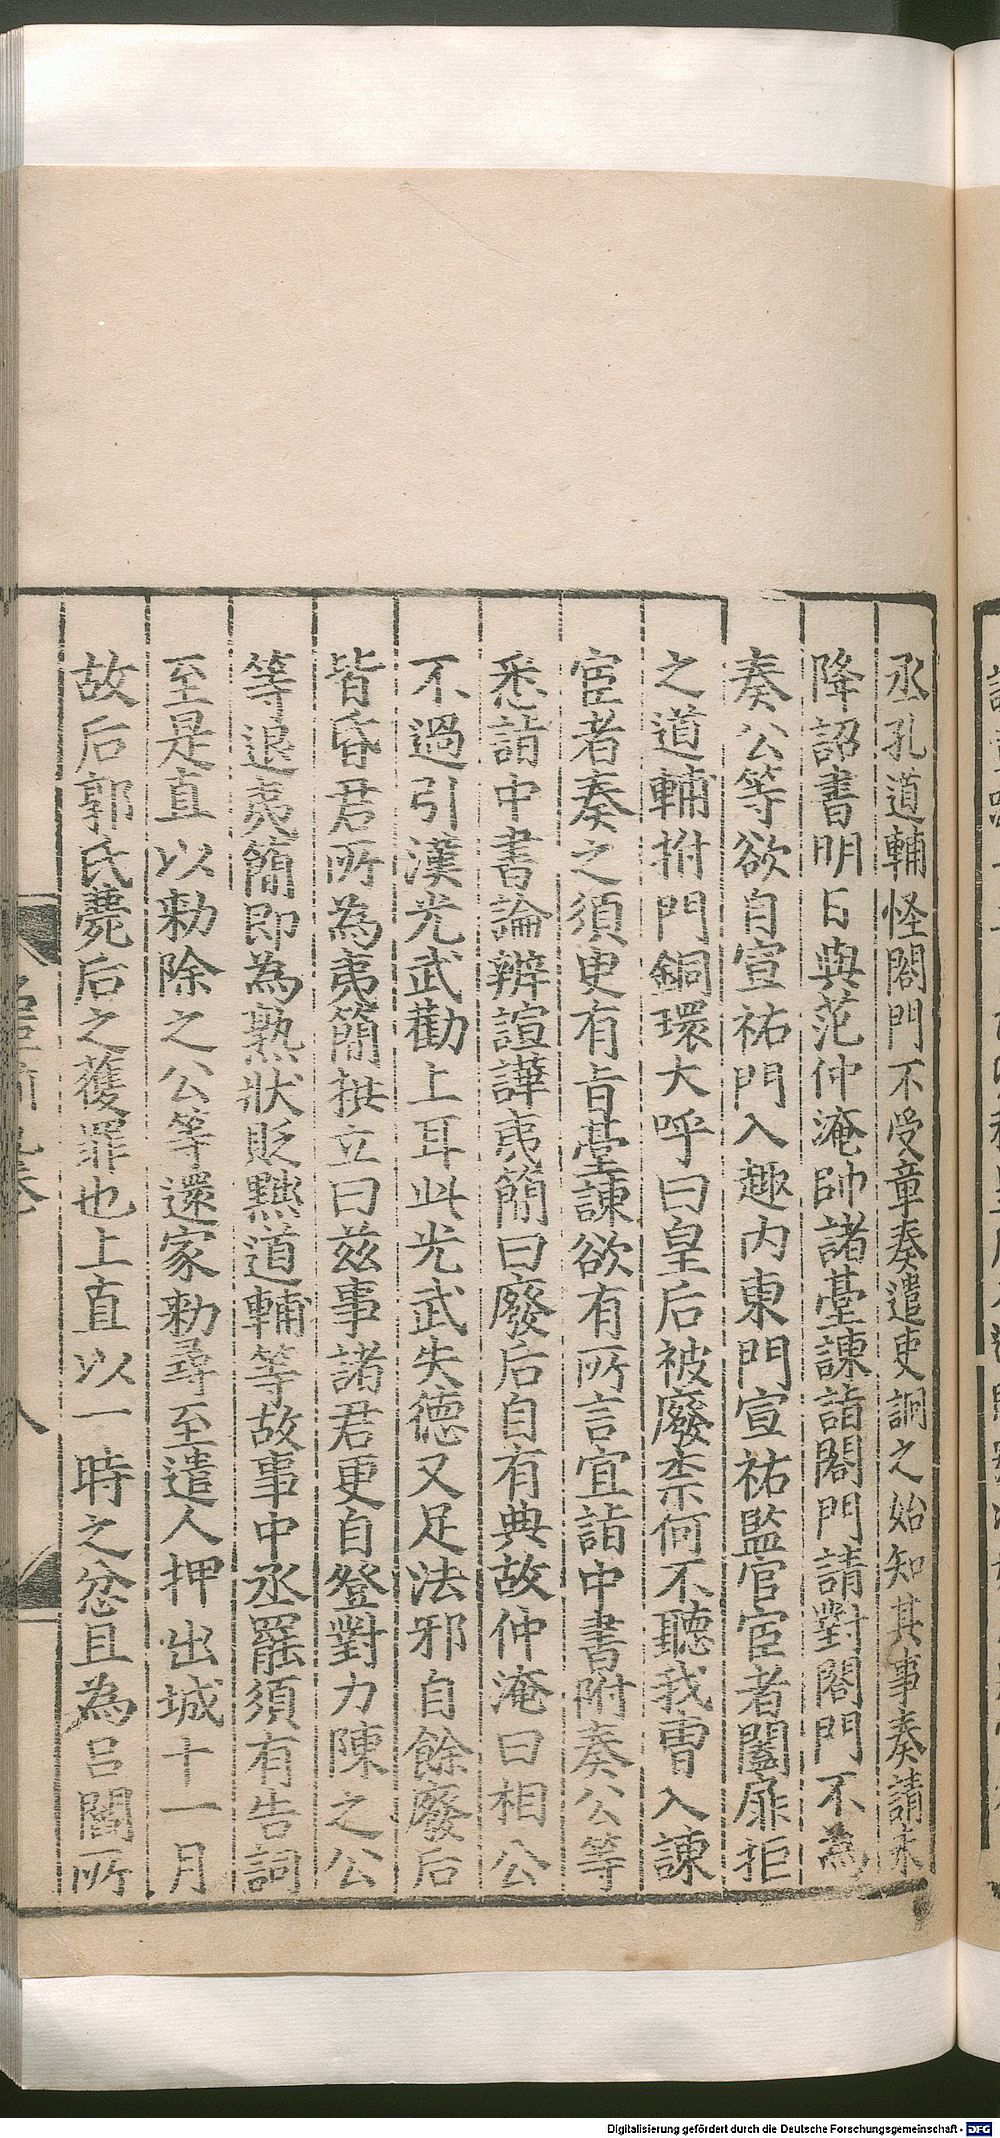 丞孔道輔怪閤門不受章奏遣吏詗之始知其事奏請未
降詔書明日與范仲淹帥諸臺諫詣閤門請對閤門不為
奏公等欲自宣祐門入趣內東門宣祐監官宦者闔扉拒
之道輔拊門銅環大呼曰皇后被廢柰何不聽我曹入諫
宦者奏之須臾有旨臺諫欲有所言宜詣中書附奏公等
悉詣中書論辨諠譁夷簡曰廢后自有典故仲淹曰相公
不過引漢光武勸上耳此光武失德又足法邪自餘廢后
皆昏君所為夷簡拱立曰茲事諸君更自登對力陳之公
等退夷簡即為熟狀貶黜道輔等故事中丞罷須有告詞
至是直以勑除之公等還家勑尋至遣人押出城十一月
故后郭氏薨后之獲罪也上直以一時之忿且為呂閻所
八
Digitalisierung gefördert durch die Deutsche Forschungsgemeinschaft - DFG